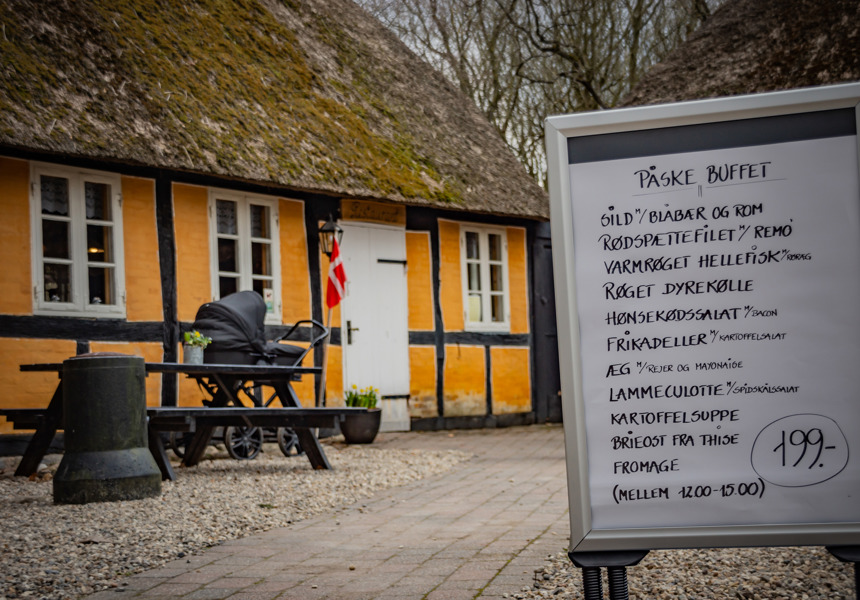 PÅSKE BUFFET
SILD M/ BLÅBÆR OG ROM
RØDSPÆTTEFILET M/ REMO
VARMRØGET HELLEFISK M/RØRÆG
RØGET DYREKØLLE
HØNSEKØDSSALAT M/BACON
FRIKADELLER M/KARTOFFELSALAT
ÆG M/REJER OG MAYONAISE
LAMMECULOTTE M/SPIDSKÅLSSALAT
KARTOFFELSUPPE
BRIEOST FRA THISE
199.-
FROMAGE
(MELLEM 12.00-15.00)